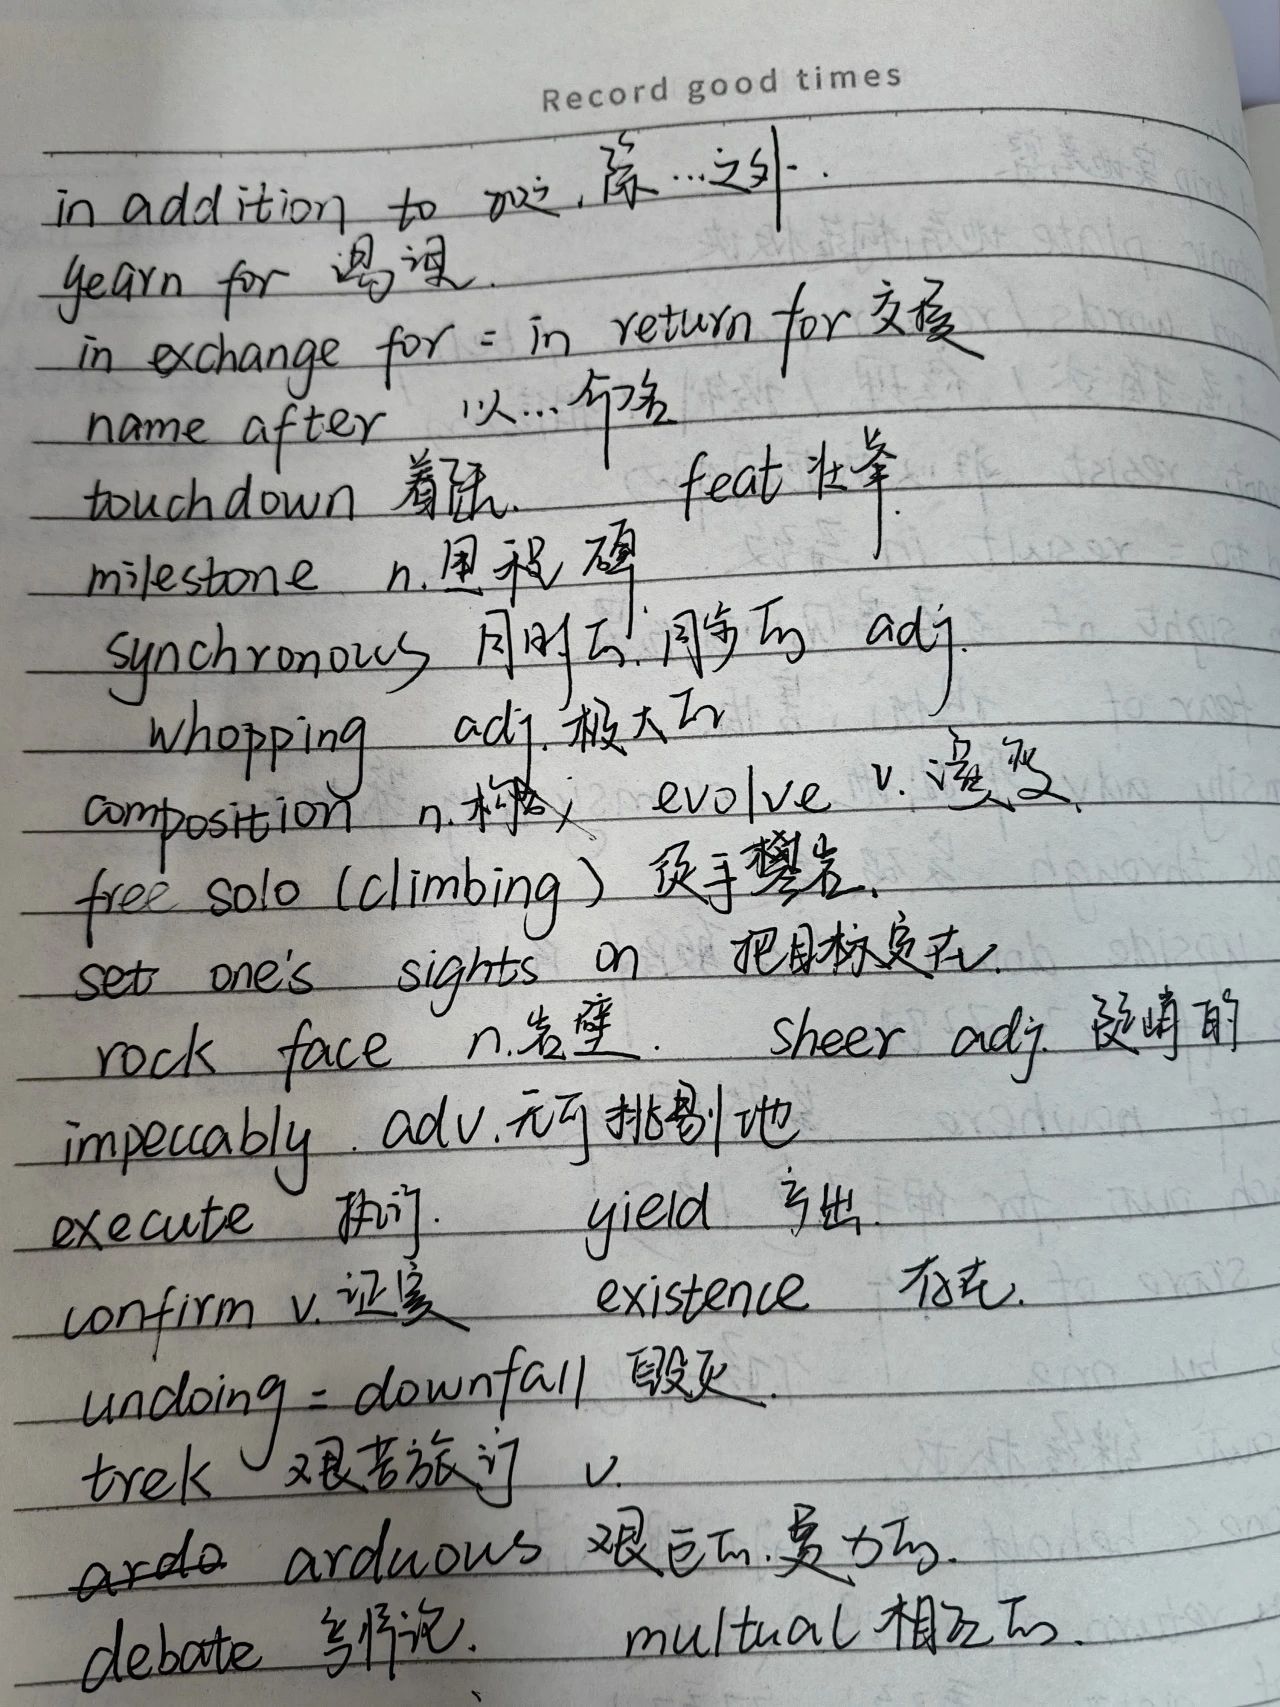 Record good times
in addition to 加之,除…之外.
yearn for 渴望.
in exchange for = in return for 交换
name after 以…命名
touchdown 着陆. feat 壮举.
milestone n.里程碑
synchronous 同时的.同步的 adj.
whopping adj.极大的
composition n.构成 evolve v.演变.
free solo (climbing) 徒手攀岩.
set one's sights on 把目标定在.
rock face n.岩壁. sheer adj. 陡峭的
impeccably. adv.无可挑剔地
execute 执行. yield 产出.
confirm v.证实 existence 存在.
undoing = downfall 毁灭.
trek 艰苦旅行 v.
arduous 艰巨的.费力的.
debate 辩论. multual 相互的.